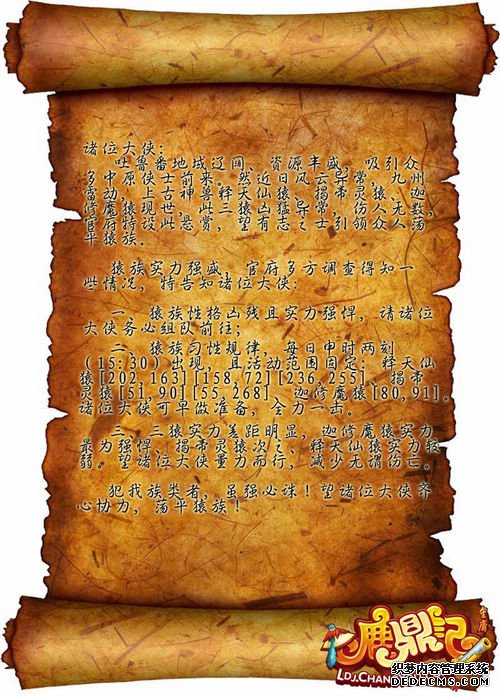 诸位大侠：
吐鲁番地域辽阔，资源丰盛，吸引众
多中原侠士前来。然近日风云异常，九州
雷动，上古神兽释天仙猿、揭帝灵猿、迦
修魔猿现世，此三猿凶猛异常，伤人无数，
官府特设此悬赏，望有志之士引领众人荡
平猿族。
猿族实力强盛，官府多方调查得知一
些情况，特告知诸位大侠：
一、猿族性格凶残且实力强悍，请诸位
大侠务必组队前往；
二、猿族习性规律，每日申时两刻
（15：30）出现，且活动范围固定：释天仙
猿[202,163][158,72][236,255]、揭帝
灵猿[51,90][55,268]、迦修魔猿[80,91]。
诸位大侠可早做准备，全力一击。
三、三猿实力差距明显，迦修魔猿实力
最为强悍、揭帝灵猿次之、释天仙猿实力较
弱。望诸位大侠量力而行，减少无谓伤亡。
犯我族类者，虽强必诛！望诸位大侠齐
心协力，荡平猿族！
金庸
鹿鼎记
LDJ.CHAN
织梦内容管理系统
DEDECMS.COM